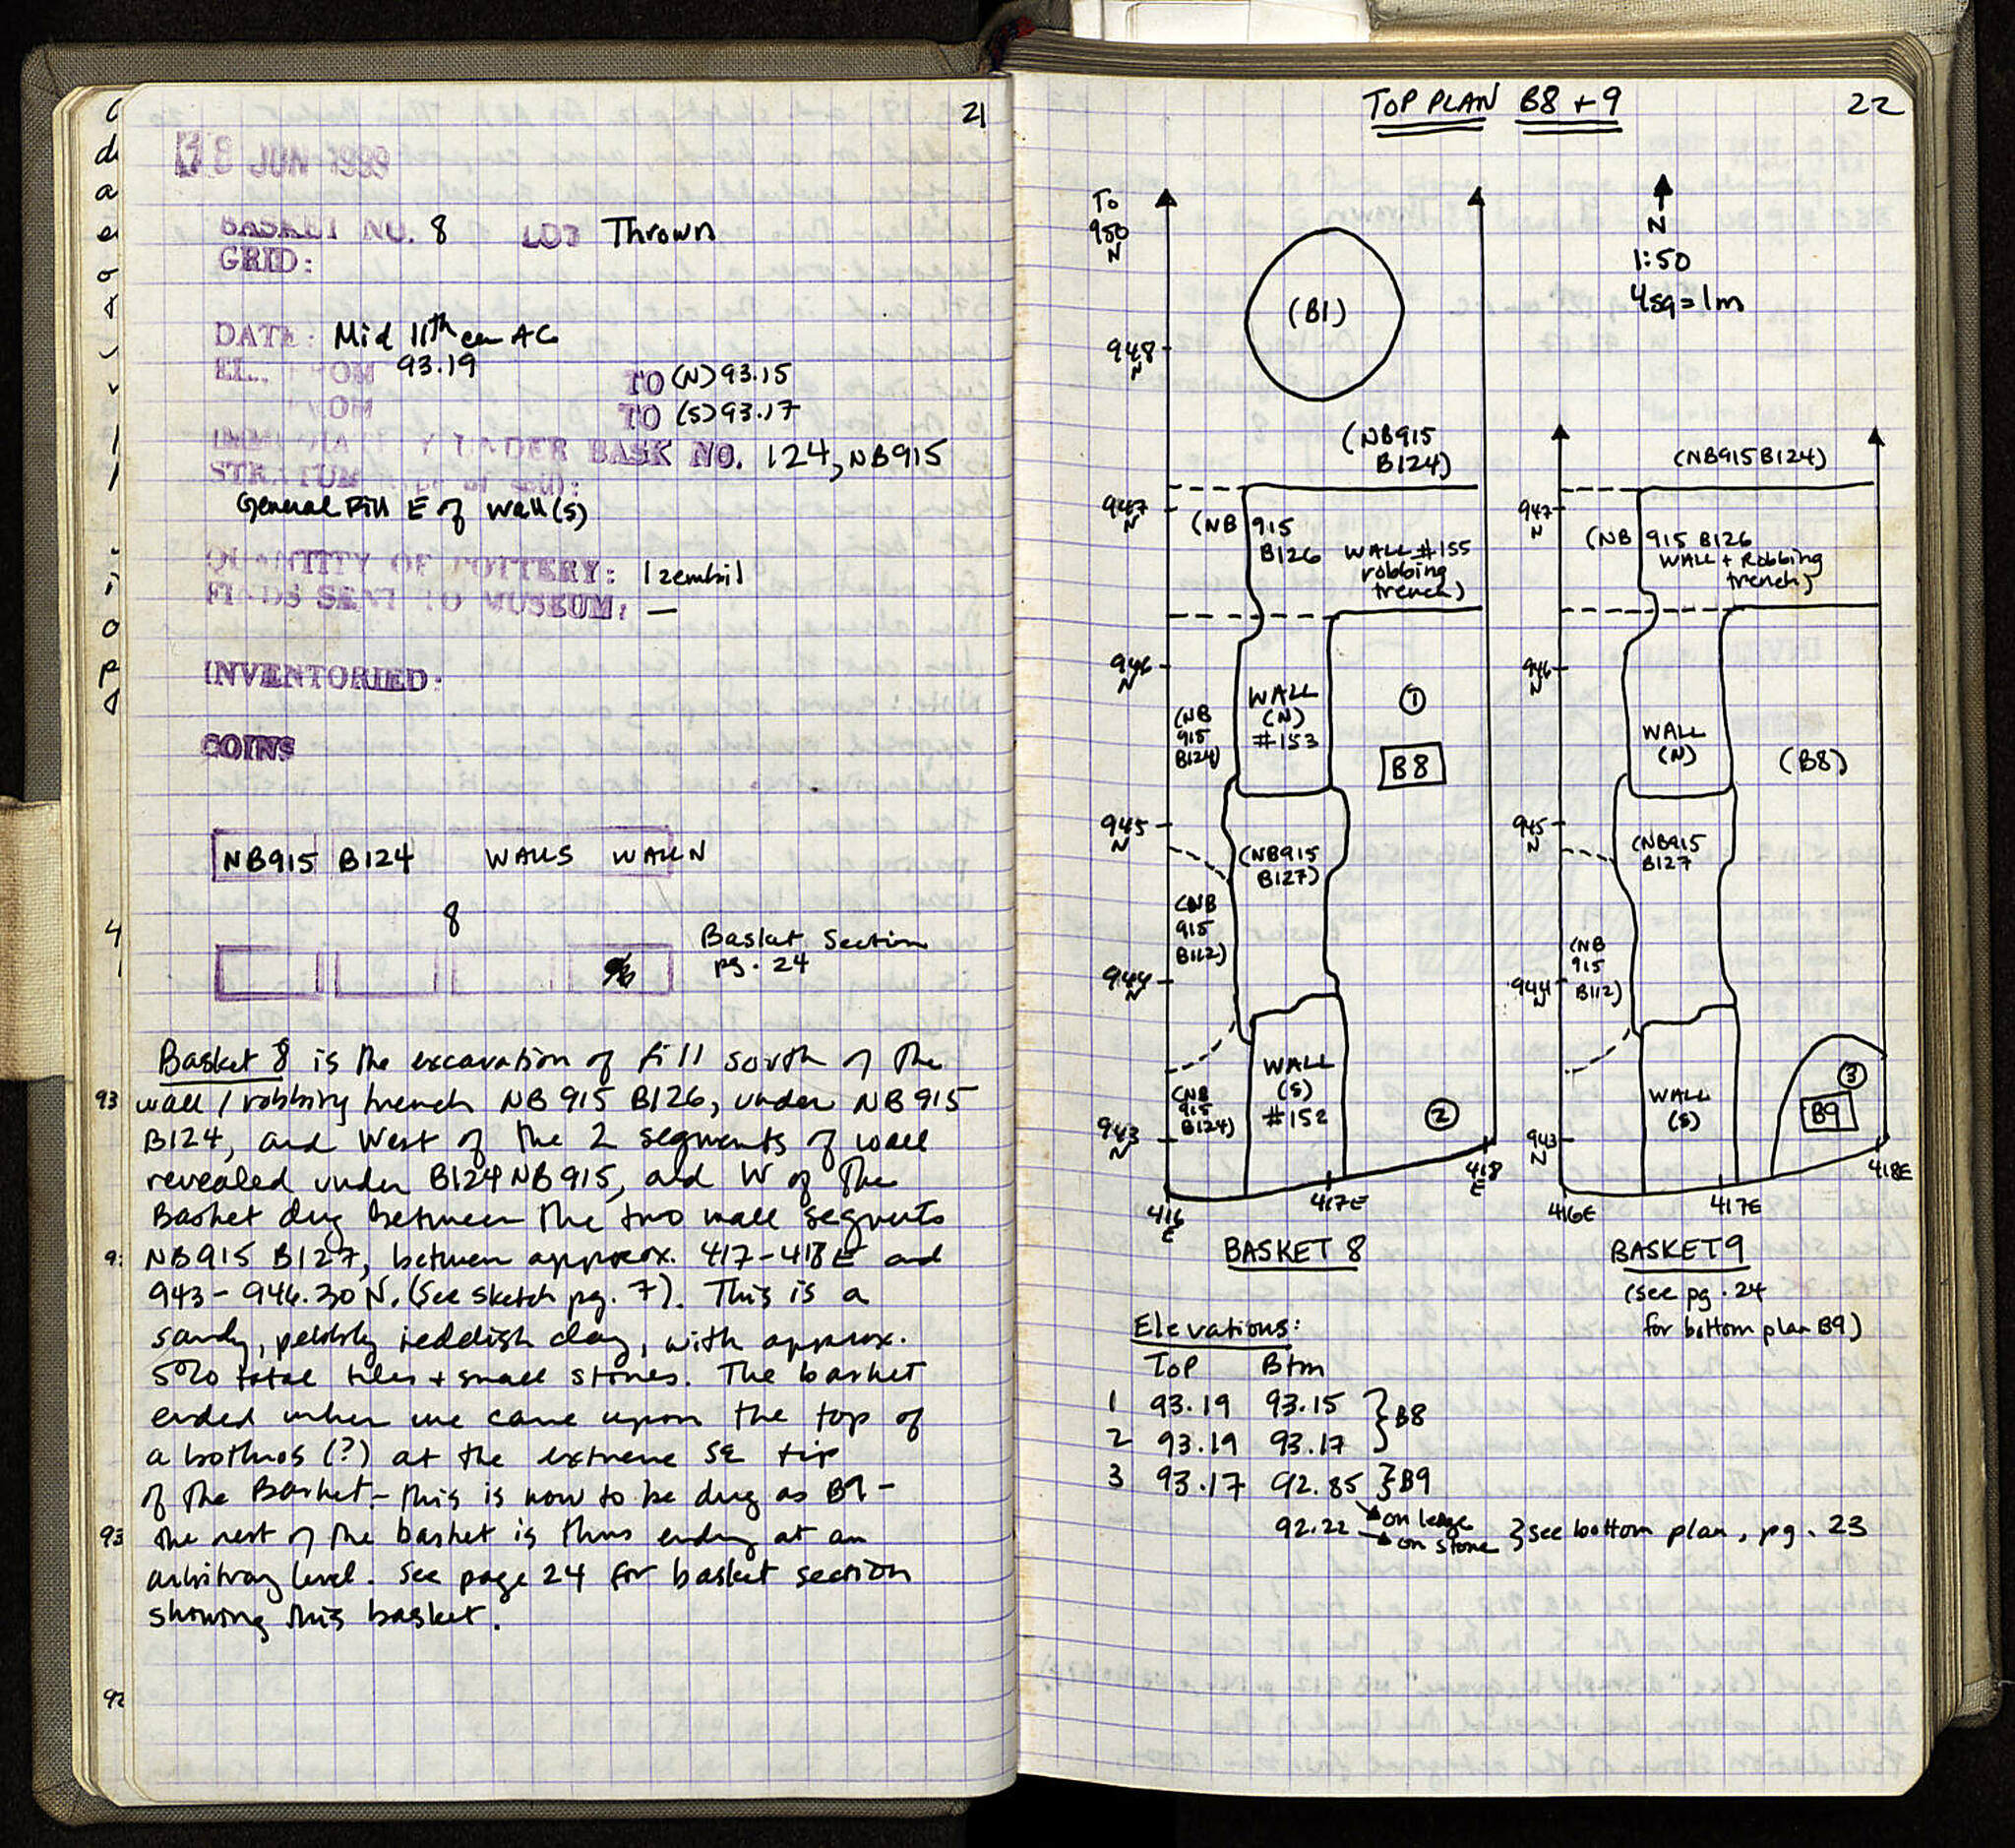 21
18 JUN 1999
BASKET NO. 8 LOT Thrown
GRID:
DATE: Mid 11th cen AC
EL. FROM 93.19 TO (N) 93.15
FROM TO (S) 93.17
IMMEDIATELY UNDER BASK NO. 124, NB915
STRATUM (type of soil):
General Fill E of wall (s)
QUANTITY OF POTTERY: 1 zembil
FINDS SENT TO MUSEUM: —
INVENTORIED:
COINS
NB915 B124 WALL S WALL N
8
Basket Section
pg. 24
Basket 8 is the excavation of fill south of the
wall / robbing trench NB 915 B126, under NB 915
B124, and West of the 2 segments of wall
revealed under B124 NB 915, and W of the
Basket dug between the two wall segments
NB915 B127, between approx. 417-418 E and
943 - 946.30 N. (See sketch pg. 7). This is a
sandy, pebbly reddish clay, with approx.
5% total tiles + small stones. The basket
ended when we came upon the top of
a bothros (?) at the extreme SE tip
of the Basket - this is now to be dug as B9 -
the rest of the basket is thus ending at an
arbitrary level. See page 24 for basket section
showing this basket.
TOP PLAN B8 + 9
22
To
950
N
N
1:50
4sq = 1m
(B1)
948
N
(NB915
B124)
947
N
(NB 915
B126 WALL #155
robbing
trench)
946
N
(NB
915
B124)
WALL
(N)
#153
1
B8
945
N
(NB915
B127)
(NB
915
B112)
944
N
WALL
(S)
#152
(NB
915
B124)
2
943
N
416
E
417E
418
E
BASKET 8
(NB915 B124)
947
N
(NB 915 B126
WALL + Robbing
trench)
946
N
WALL
(N)
(B8)
945
N
(NB915
B127
(NB
915
B112)
944
N
WALL
(S)
3
B9
943
N
416E
417E
418E
BASKET 9
(see pg. 24
for bottom plan B9)
Elevations:
TOP Btm
1 93.19 93.15 } B8
2 93.19 93.17
3 93.17 92.85 } B9
on ledge
92.22 on stone } see bottom plan, pg. 23